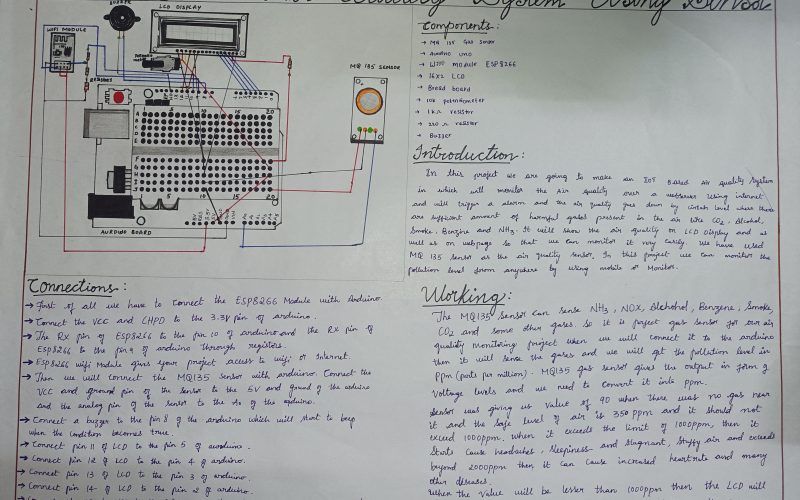 Quality System Using Sensor
BUZZER
LCD DISPLAY
WIFI MODULE
RESISTORS
MQ 135 SENSOR
5 10 15 20
A
5 10 15 20
AURDINO BOARD
Components:
→ MQ 135 Gas Sensor
→ Aurdino Uno
→ Wifi module ESP8266
→ 16x2 LCD
→ Bread board
→ 10K potentiometer
→ 1KΩ resistor
→ 220 Ω resistor
→ Buzzer
Introduction:
In this project we are going to make an IOT Based Air quality System
in which will monitor the Air quality over a webserver Using internet
and will trigger a alarm and the air quality goes down by certain level where there
are sufficient amount of harmful gases present in the air like CO2, Alcohol,
Smoke, Benzene and NH3. It will show the air quality on LCD Display and as
well as on webpage so that we can monitor it very easily. We have used
MQ 135 sensor as the air quality sensor. In this project we can monitor the
pollution level from anywhere by using mobile or Monitor.
Connections:
→ First of all we have to Connect the ESP8266 Module with Arduino.
→ Connect the VCC and CHPD to the 3.3V pin of arduino.
→ The RX pin of ESP8266 to the pin 10 of arduino and the RX pin of
ESP8266 to the pin 9 of arduino through registors.
→ ESP8266 wifi Module gives your project access to wifi or Internet.
→ Then we will connect the MQ135 Sensor with arduino. Connect the
VCC and ground pin of the sensor to the 5V and ground of the arduino
and the analog pin of the sensor to the A0 of the arduino.
→ Connect a buzzer to the pin 8 of the arduino which will start to beep
when the condition becomes true.
→ Connect pin 11 of LCD to the pin 5 of arduino.
→ Connect pin 12 of LCD to the pin 4 of arduino.
→ Connect pin 13 of LCD to the pin 3 of arduino.
→ Connect pin 14 of LCD to the pin 2 of arduino.
Working:
The MQ135 sensor can sense NH3, NOx, Alchohol, Benzene, Smoke,
CO2 and some other gases. So it is perfect gas sensor for our air
quality monitoring project when we will connect it to the arduino
then it will sense the gases and we will get the pollution level in
PPM (parts per million). MQ135 gas sensor gives the output in form of
voltage levels and we need to convert it into PPM.
Sensor was giving us value of 90 when there was no gas near
it and the safe level of air is 350 PPM and it should not
exceed 1000PPM. When it exceeds the limit of 1000PPM, then it
starts cause headaches, sleepiness and stagnant, stuffy air and exceeds
beyond 2000PPM then it can cause increased heartrate and many
other diseases.
When the value will be lesser than 1000PPM then the LCD will